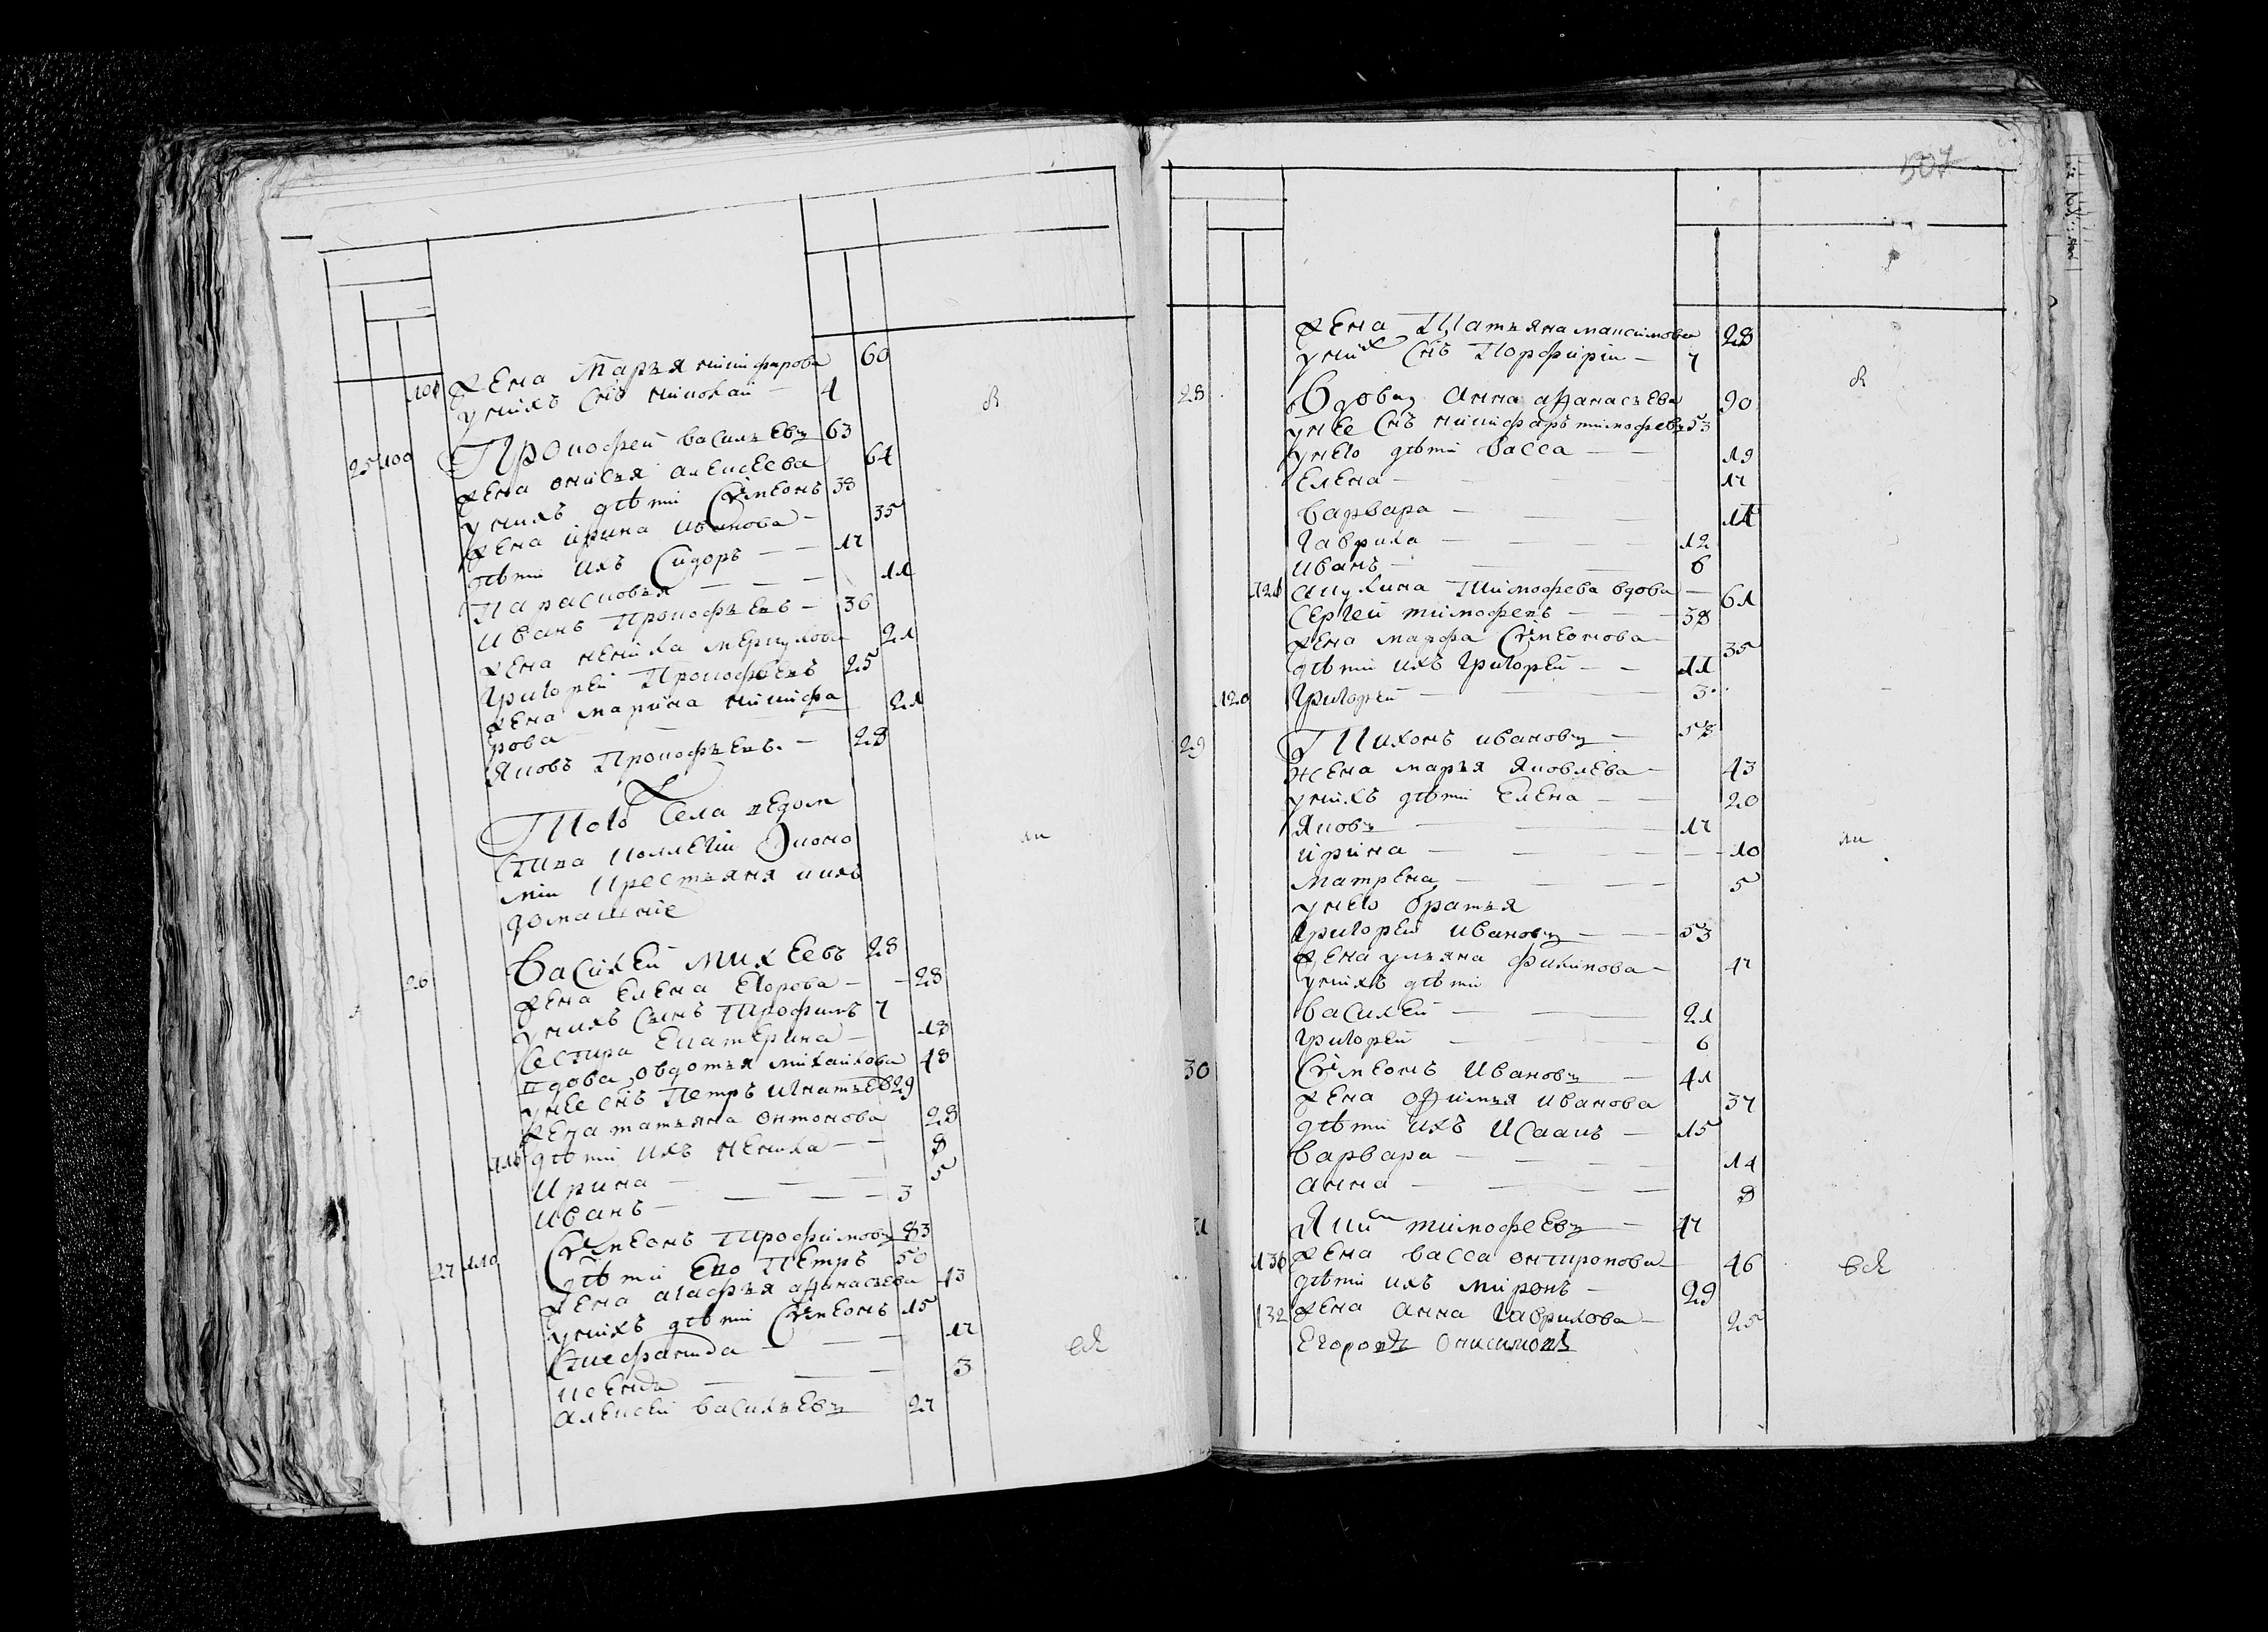 507
108 жена Марья никифорова 60
у нихъ снъ николаи 4
25 100 Прокофеи васильевъ 63
жена онисья алексеева 64
у нихъ дѣти Симеонъ 38
жена ирина иванова 35
дѣти ихъ Сидоръ 17
Парасковья 11
иванъ Прокофьевъ 36
жена ненила меркулова 21
Григореи Прокофьевъ 25
жена марина никифо
рова 21
Яковъ Прокофьевъ 28
Того села ведом
ства коллегіи Эконо
міи крестьяня и ихъ
домашніе
26 василеи михеевъ 28
жена елена егорова 28
у нихъ сынъ трофимъ 7
сестра екатерина 18
вдова овдотья михаилова 48
у нее снъ петръ игнатьевъ 29
жена татьяна онтонова 28
дѣти ихъ ненила 8
ирина 5
иванъ 3
27 110 Симеонъ трофимовъ 83
дѣти ево петръ 50
жена агафья афанасьева 43
у нихъ дѣти Симеонъ 15
Стефанида 17
3
алексеи васильевъ 27
жена Татьяна максимова 28
у нихъ снъ Порфирiи 7
28 вдова анна афанасьева 90
у нее снъ никифоръ тимофеевъ 53
у него дѣти васса 19
елена 17
варвара 14
гаврила 12
иванъ 6
акулина тимофева вдова 61
Сергеи тимофевъ 38
жена марфа Симеонова 35
дѣти ихъ григореи 11
120 григореи 3
29 Тихонъ ивановъ 58
жена марья яковлева 43
у нихъ дѣти елена 20
яковъ 17
ирина 10
матрена 5
у него братья
григореи ивановъ 53
жена ульяна филипова 47
у нихъ дѣти
василеи 21
григореи 6
30 Симеонъ ивановъ 41
жена офимья иванова 37
дѣти ихъ исаакъ 15
варвара 14
анна 8
тимофеевъ 47
130 жена васса онтропова 46
дѣти ихъ миронъ 29
132 жена анна гаврилова 25
Егоровъ Онисимовъ